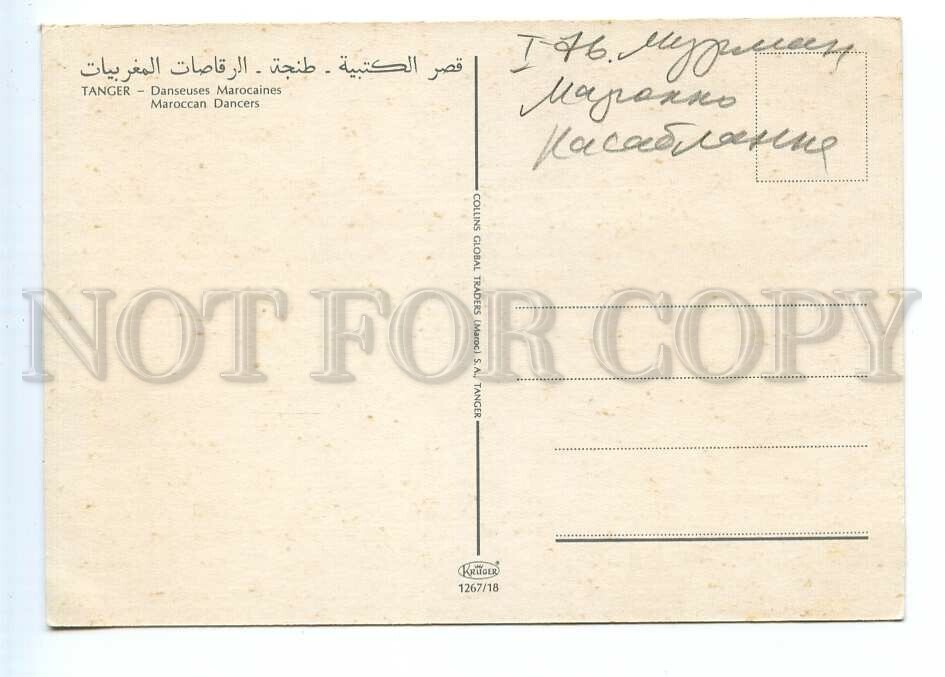 قصر الكتبية - طنجة - الرقاصات المغربيات
TANGER – Danseuses Marocaines
Maroccan Dancers
I 76. Мурман
Марокко
Касабланка
COLLINS GLOBAL TRADERS (Maroc) S.A., TANGER
NOT FOR COPY
KRÜGER
1267/18